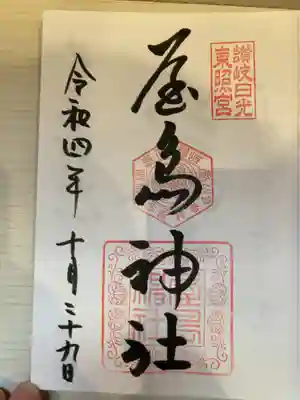 讃岐日光
東照宮
屋島神社
令和四年 十月二十九日